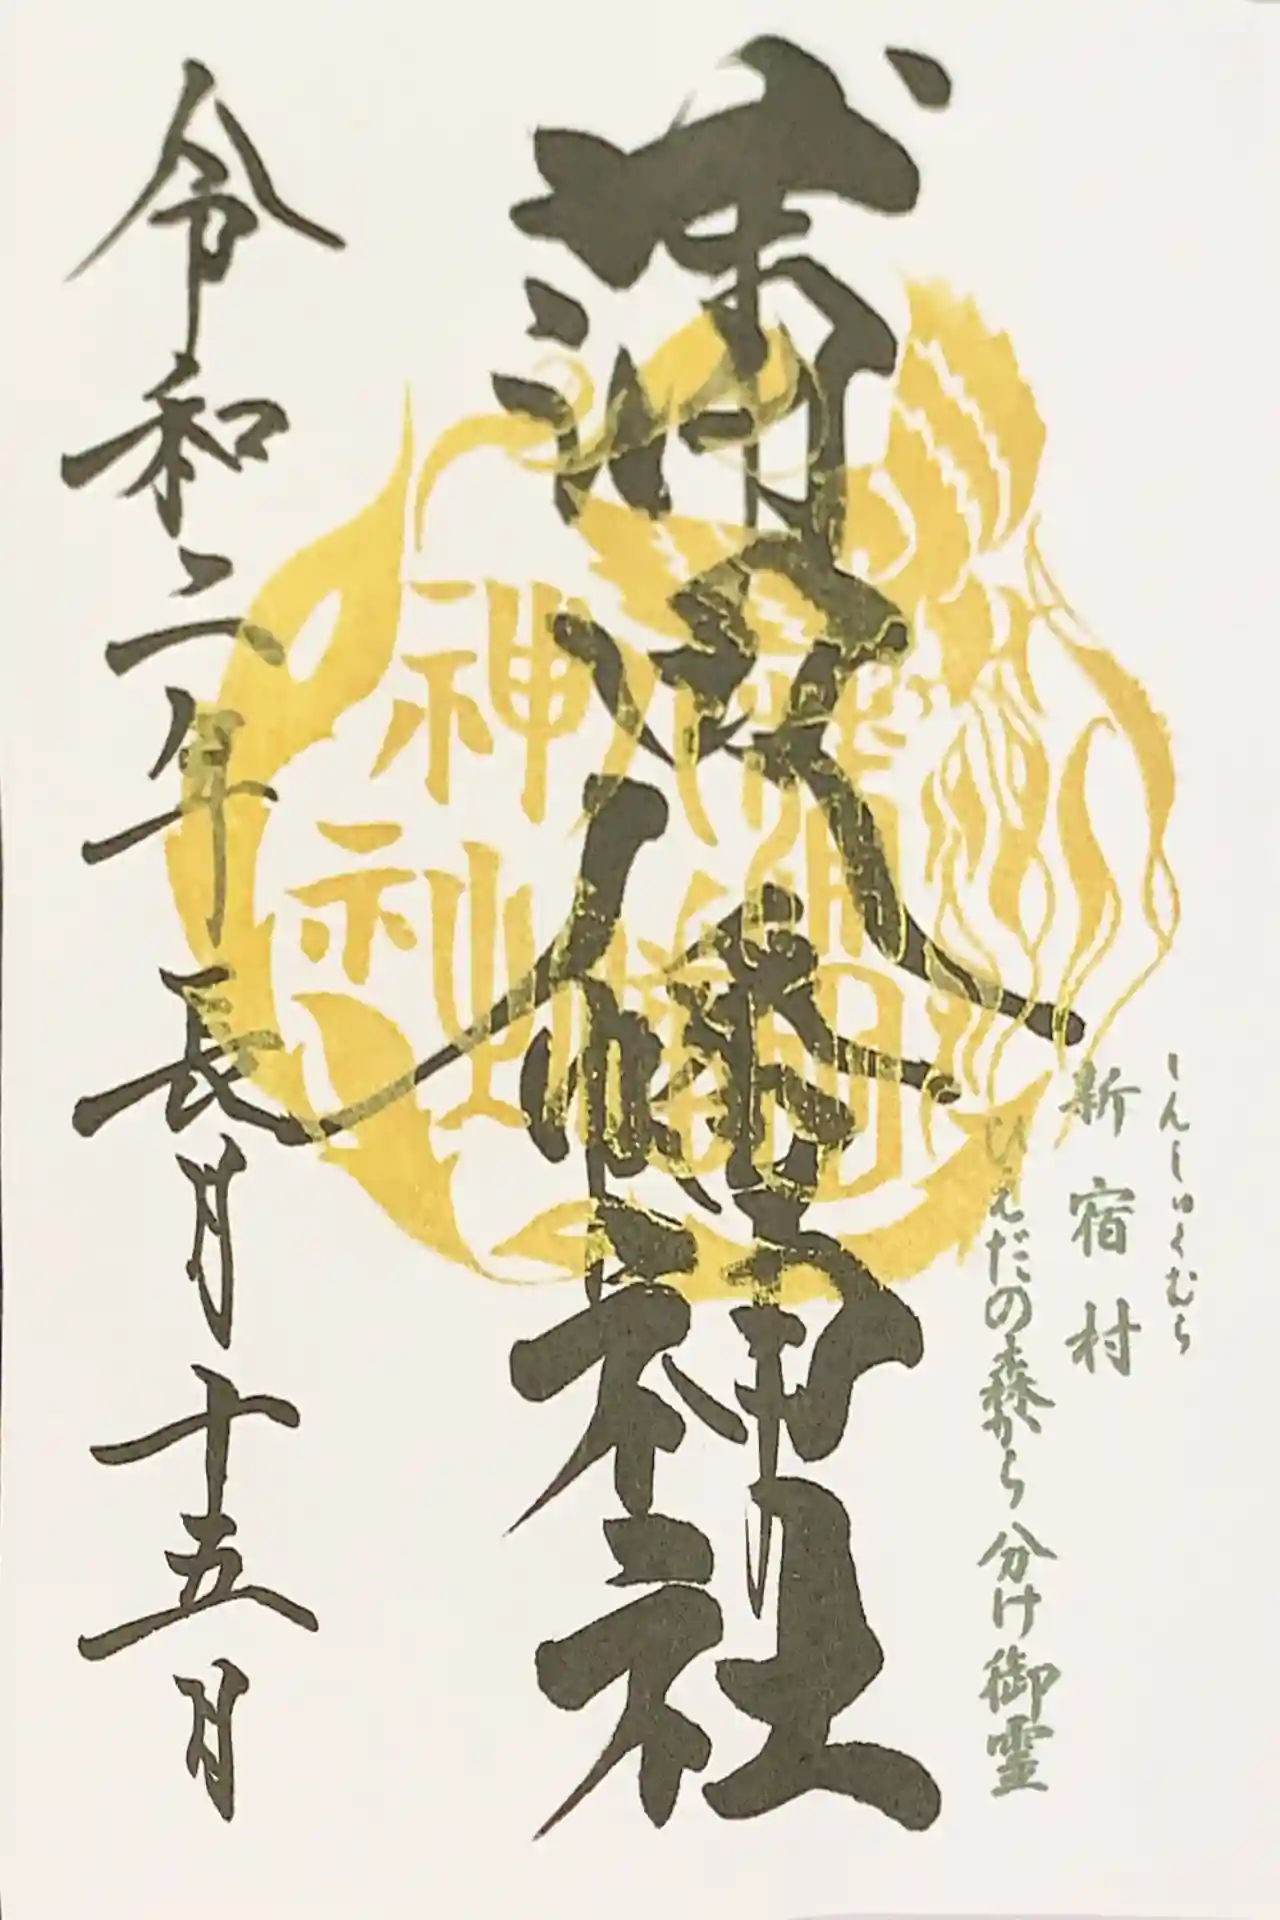 しんしゅくむら
新宿村
ひえだの森から 分け御霊
蒲田八幡神社
蒲田
八幡
神社
令和二年 長月十五日